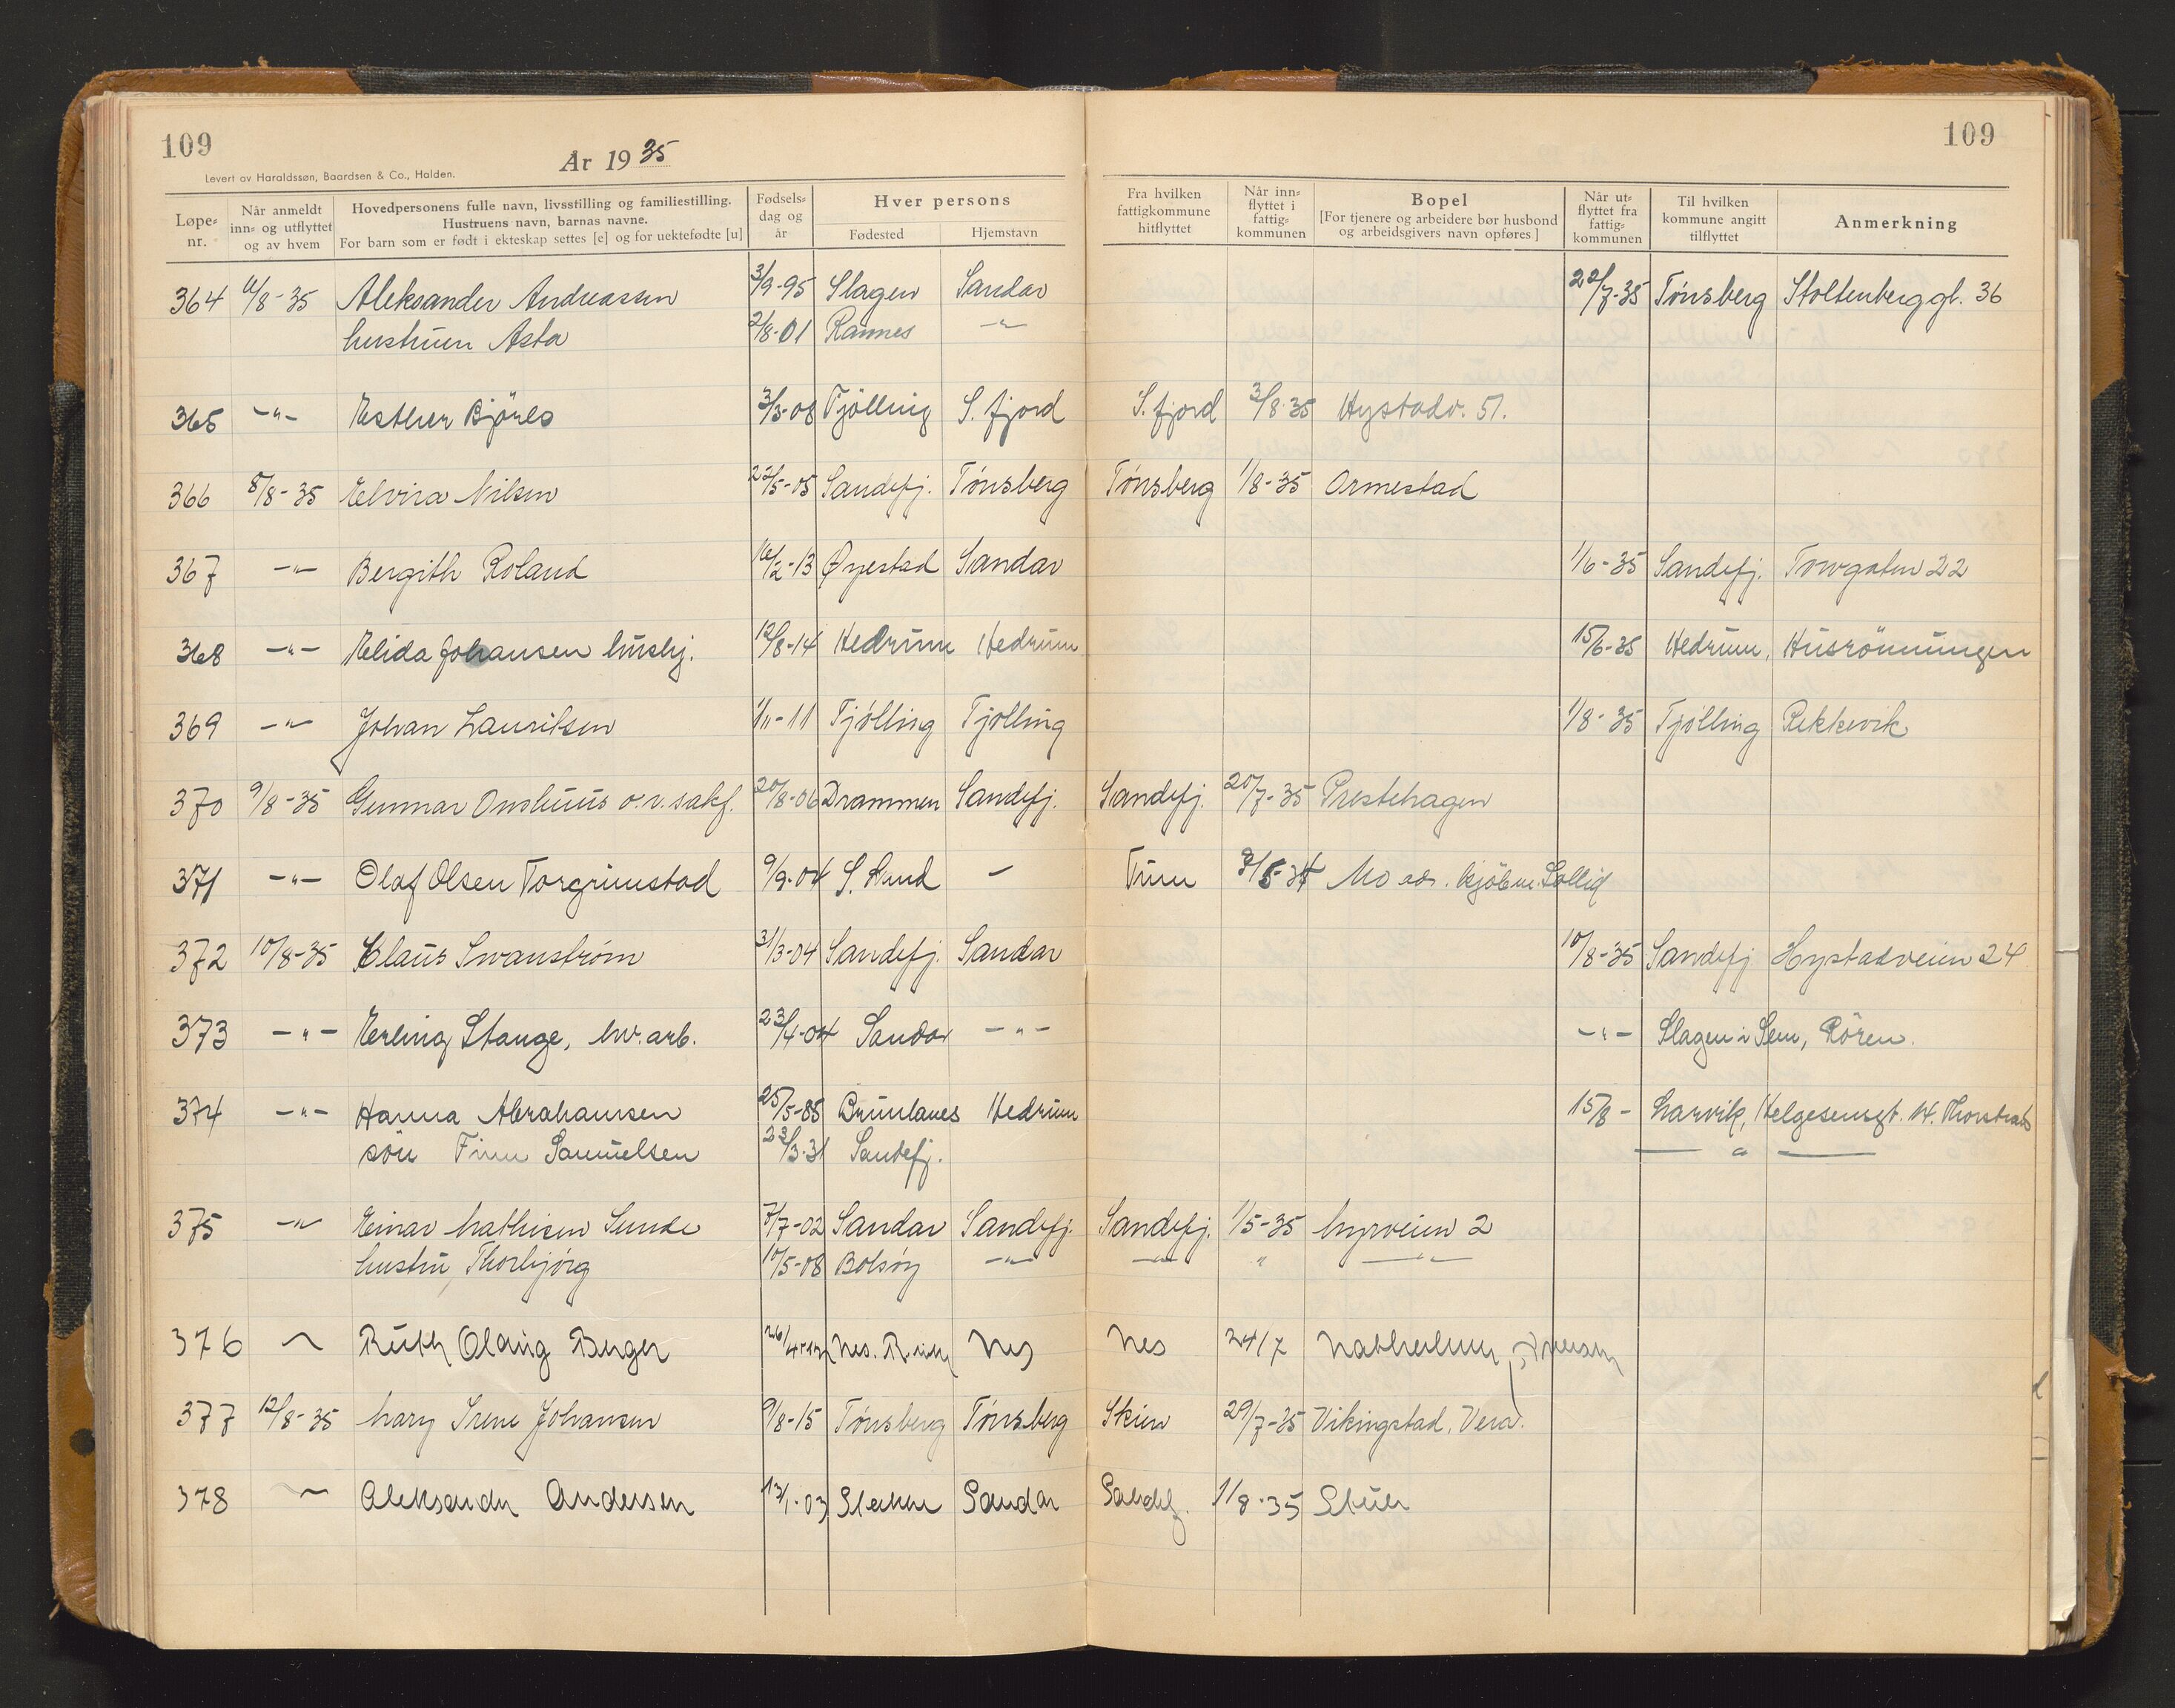 109
109
År 1935
Levert av Haraldssøn, Baardsen & Co., Halden.
Løpe-nr. Når anmeldt inn- og utflyttet og av hvem Hovedpersonens fulle navn, livsstilling og familiestilling. Hustruens navn, barnas navne. For barn som er født i ekteskap settes [e] og for uektefødte [u] Fødsels-dag og år Hver persons Fødested Hjemstavn Fra hvilken fattigkommune hitflyttet Når inn-flyttet i fattig-kommunen Bopel [For tjenere og arbeidere bør husbond og arbeidsgivers navn opføres] Når ut-flyttet fra fattig-kommunen Til hvilken kommune angitt tilflyttet Anmerkning
364 /8-35 Aleksander Andreassen 3/9-95 Slagen Sandar 22/7-35 Tønsberg Stoltenberggt. 36
hustruen Asta 2/8-01 Ramnes -"-
365 -"- Esther Bjönes 3/3-08 Tjölling S. fjord S. fjord 3/8-35 Hystadv. 51.
366 8/8-35 Elvira Nilsen 22/5-05 Sandefj. Tønsberg Tønsberg 1/8-35 Ormestad
367 -"- Bergith Roland 16/2-13 Øyestad Sandar 1/6-35 Sandefj. Torvgaten 22
368 -"- Elida Johansen hushj. 12/8-14 Hedrum Hedrum 15/6-35 Hedrum, Husrönningen
369 -"- Johan Lauritsen 1/11-11 Tjølling Tjølling 1/8-35 Tjølling Rekkevik
370 9/8-35 Gunnar Onshuus o.r.sakf. 20/8-06 Drammen Sandefj. Sandefj. 20/7-35 Prestehagen
371 -"- Olaf Olsen Torgrimstad 9/9-04 S. Land - Tinn /5-34 Mo adr. kjöbm. Sollid
372 10/8-35 Klaus Svanstrøm 31/3-04 Sandefj. Sandar 10/8-35 Sandefj Hystadveien 24
373 -"- Erling Stange, hv.arb. 23/4-04 Sandar -"- -"- Slagen i Sem, Rören.
374 -"- Hanna Abrahamsen 25/5-85 Brunlanes Hedrum 15/8- Larvik, Helgesensgt. 14. Thorstrand
sön Finn Samuelsen 23/3-31 Sandefj. -"-
375 -"- Einar Mathisen Sunde 7/7-02 Sandar Sandefj. Sandefj. 1/5-35 Myrveien 2
hustru Thorbjörg 10/5-08 Bolsöy -"- -"- " -"-
376 - Ruth Olaug Berger 26/4-12 Nes. R Nes Nes 24/7
377 12/8-35 Mary Irene Johansen 9/8-15 Tønsberg Tønsberg Skien 29/7-35 Vikingstad, Vera.
378 - Aleksander Andersen 13/1-03 Stokke Sandar Sandefj. 1/8-35